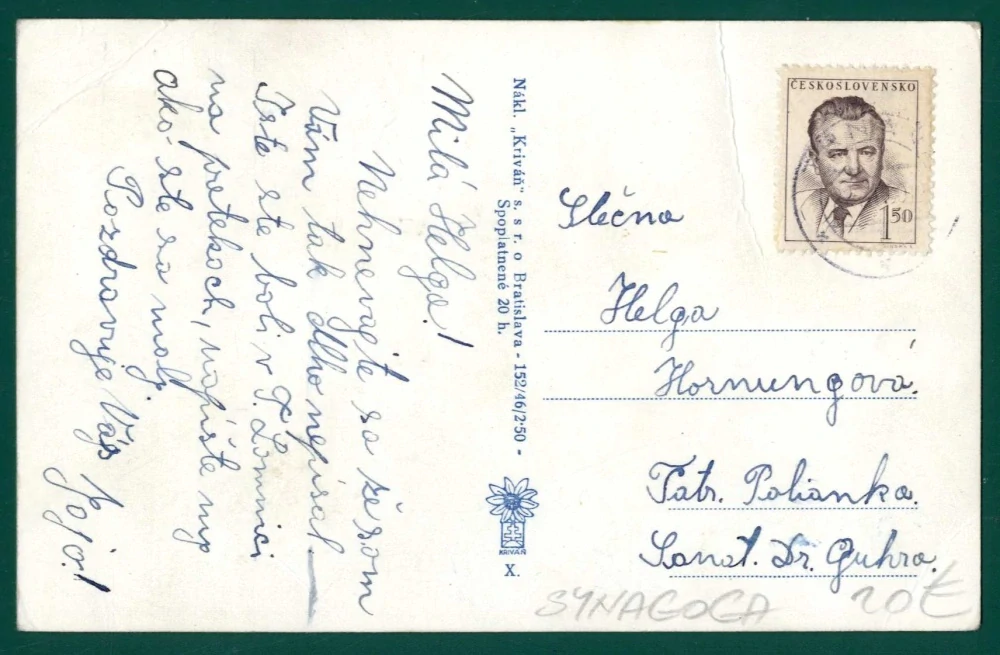 Milá Helga!
Nehnevajte sa že som
Vám tak dlho nepísal
Iste ste boli v T. Lomnici
na pretekoch, napíšte mi
ako ste sa mali
Pozdravuje Vás
Nákl. „Kriváň" s. s r. o Bratislava - 152/46/2·50 -
Spoplatnené 20 h.
KRIVÁŇ
X.
ČESKOSLOVENSKO
1 50
Slečna
Helga
Hornungová.
Tatr. Polianka.
Sanat. Dr. Guhra.
SYNAGOGA 20 €